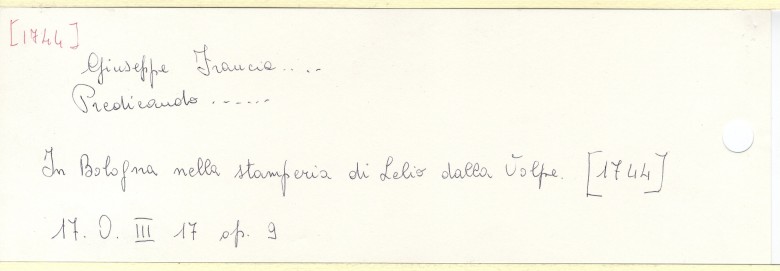 [1744]
Giuseppe Francia....
Predicando ......
In Bologna nella stamperia di Lelio dalla Volpe. [1744]
17. O. III 17 op. 9